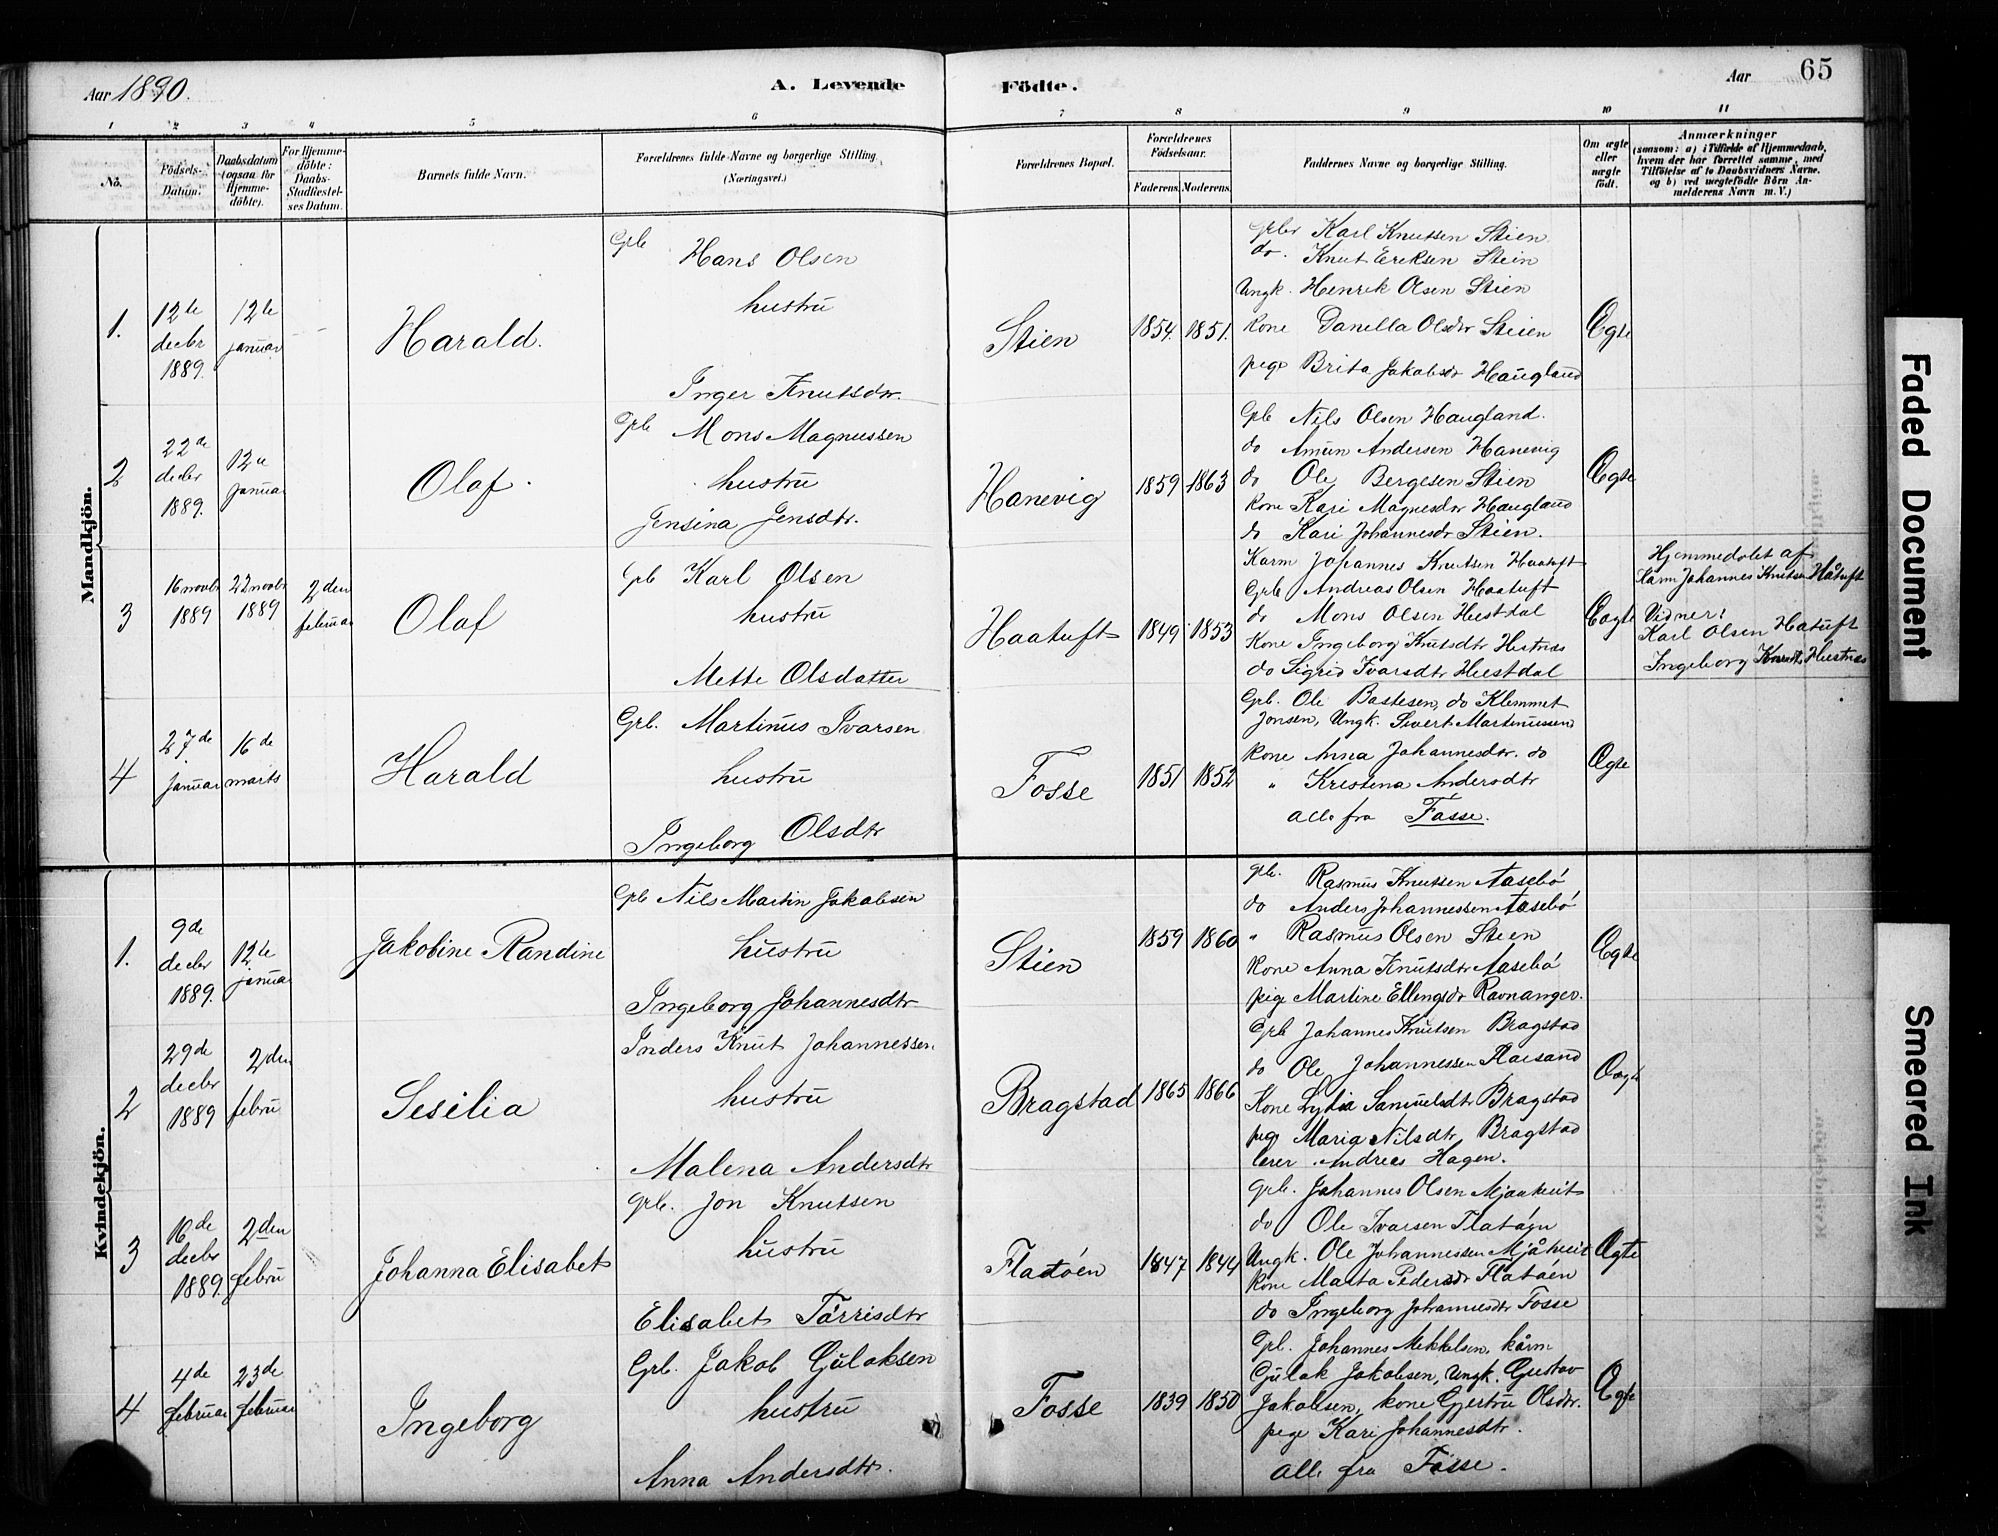 Aar 1890.
A. Levende
Födte.
Aar
65
1 2 3 4 5 6 7 8 9 10 11
No.
Födsels-
Datum.
Daabsdatum
(ogsaa for
Hjemme-
döbte).
For Hjemme-
döbte:
Daabs-
Stadfæstel-
ses Datum.
Barnets fulde Navn.
Forældrenes fulde Navne og borgerlige Stilling
(Næringsvei.)
Forældrenes Bopæl.
Forældrenes
Födselsaar.
Faderens. Moderens.
Faddernes Navne og borgerlige Stilling.
Om ægte
eller
uægte
født.
Anmærkninger
(saasom: a) i Tilfælde af Hjemmedaab,
hvem der har forrettet samme, med
Tilföielse af to Daabsvidners Navne.
og b) ved uægtefödte Börn An-
melderens Navn m.V.)
Mandkjön.
1.
12te
decbr
1889.
12te
januar
Harald.
Grb
Hans Olsen
hustru
Inger Knutsdtr.
Stien
1854. 1851.
Grbr Karl Knutsen Stien
do. Knut Eriksen Stien
Ungk. Henrik Olsen Stien
Kone Danella Olsdtr Steien
pige Brita Jakobsdr Haugland
Ægte
2
22de
decbr
1889.
12te
januar
Olaf.
Grb Mons Magnussen
hustru
Jensina Jensdtr.
Hanevig
1859 1863
Grb Nils Olsen Haugland.
do Amun Andersen Hanevig
do Ole Bergesen Stien
Kone Kari Magnesdtr Haugland
do Kari Johannesdr Stien.
Ægte
3
16 novbr
1889
22 novbr
1889
2den
februar
Olaf
Grb Karl Olsen
hustru
Mette Olsdatter
Haatuft
1849 1853
Karm Johannes Knutsen Haatuft
Grb Andreas Olsen Haatuft
do Mons Olsen Hestdal
Kone Ingeborg Knutsdtr Hestnæs
do Sigrid Ivarsdtr Hestdal
Eægte
Hjemmedöbt af
Karm Johannes Knutsen Håtuft
Vidner:
Karl Olsen Hatuft
Ingeborg Knutsdtr Hestnæs
4
27de
januar
16de
marts
Harald
Grb. Martinus Ivarsen
hustru
Ingeborg Olsdtr
Fosse
1851 1852
Grb. Ole Bastesen, do Klemmet
Jonsen, Ungk. Sivert Martinussen
Kone Anna Johannesdtr. do
" Kristina Andersdtr
alle fra Fosse.
Ægte
Kvindekjön.
1.
9de
decbr
1889.
12te
januar
Jakobine Randine
Grb Nils Martin Jakobsen
hustru
Ingeborg Johannesdtr
Stien
1859 1860
Grb. Rasmus Knutsen Aasebö
do Anders Johannessen Aasebö
" Rasmus Olsen Stien
Kone Anna Knutsdtr Aasebö
pige Martine Ellingsdr Ravnanger.
Ægte
2
29de
decbr
1889
2den
febru
Sesilia
Inders Knut Johannessen
hustru
Malena Andersdtr
Bragstad
1865 1866
Grb Johannes Knutsen Bragstad
do Ole Johannessen Flaesand
Kone Lydia Samuelsdtr Bragstad
pige Maria Nilsdtr Bragstad
lærer Andreas Hagen.
3
16de
decbr
1889.
2den
febru
Johanna Elisabet
Grb. Jon Knutsen
hustru
Elisabet Törrisdtr
Flatöen
1847 1844
Grb. Johannes Olsen Mjaatveit
do Ole Ivarsen Flatöen
Ungk. Ole Johannessen Mjåtveit
Kone Marta Pedersdr Flatöen
do Ingeborg Johannesdtr Fosse
Ægte
4
4de
februar
23de
februar
Ingeborg
Grb. Jakob Gulaksen
hustru
Anna Andersdtr.
Fosse
1839 1850
Grb. Johannes Mikkelsen, kårm
Gulak Jakobsen, Ungk. Gustav
Jakobsen, kone Gjertru Olsdtr.
pige Kari Johannesdtr.
alle fra Fosse.
Ægte
Faded Document
Smeared Ink